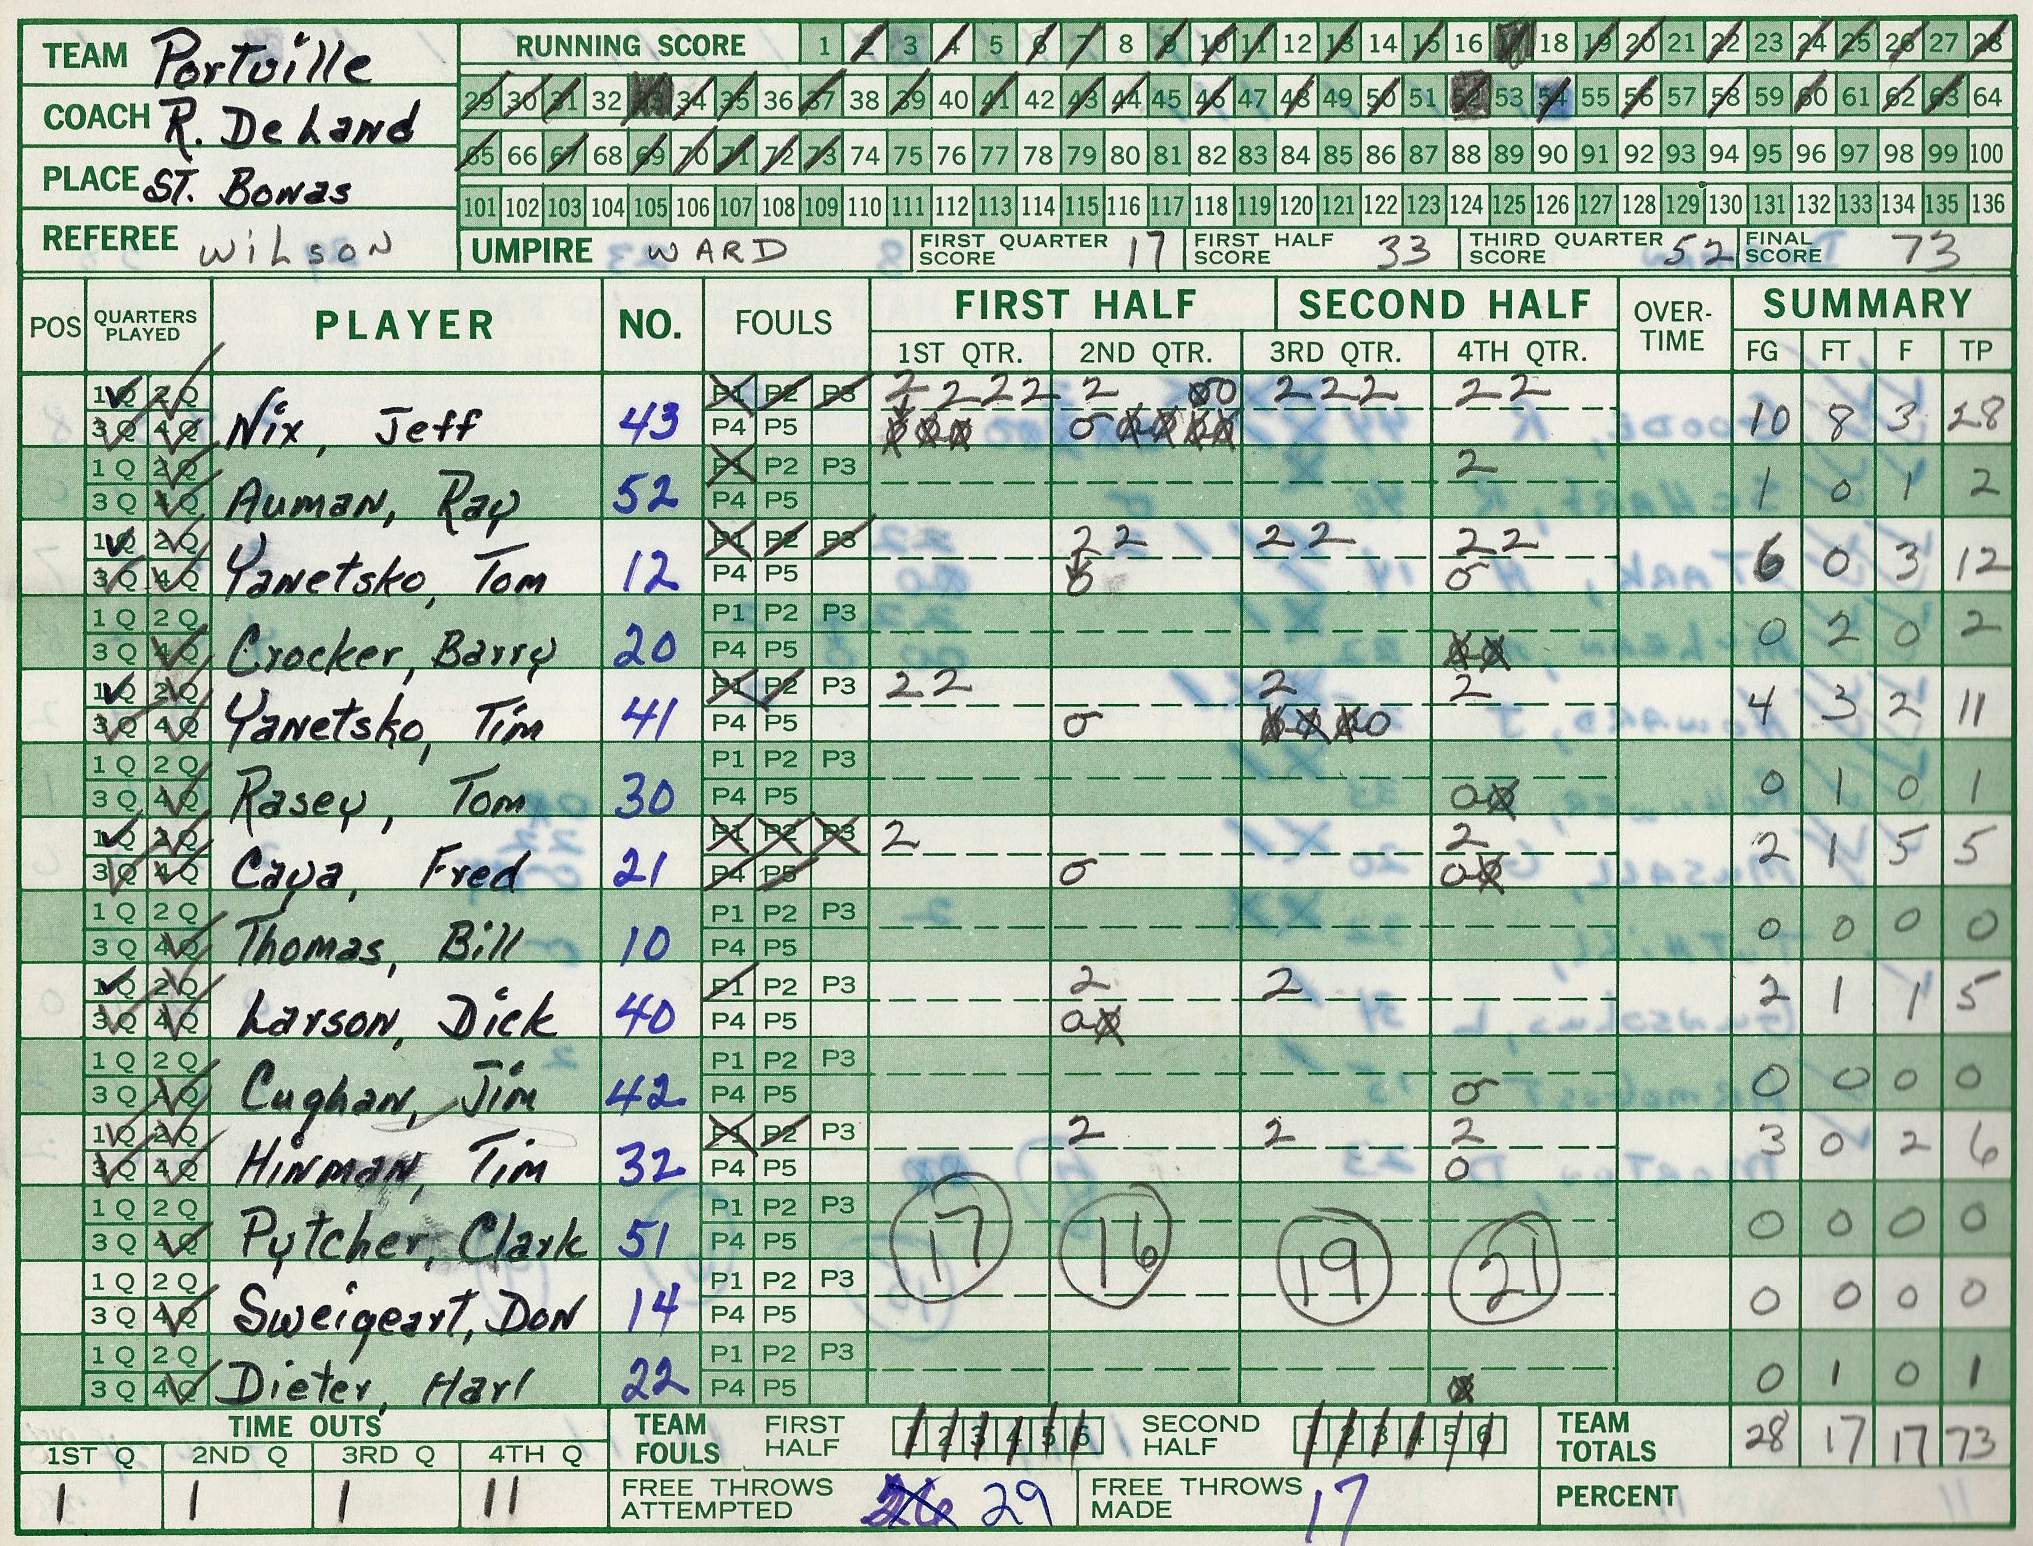 TEAM Portville
COACH R. DeLand
PLACE ST. Bonas
REFEREE WilsoN
RUNNING SCORE 1 2 3 4 5 6 7 8 9 10 11 12 13 14 15 16 17 18 19 20 21 22 23 24 25 26 27 28
29 30 31 32 33 34 35 36 37 38 39 40 41 42 43 44 45 46 47 48 49 50 51 52 53 54 55 56 57 58 59 60 61 62 63 64
65 66 67 68 69 70 71 72 73 74 75 76 77 78 79 80 81 82 83 84 85 86 87 88 89 90 91 92 93 94 95 96 97 98 99 100
101 102 103 104 105 106 107 108 109 110 111 112 113 114 115 116 117 118 119 120 121 122 123 124 125 126 127 128 129 130 131 132 133 134 135 136
UMPIRE WARD FIRST QUARTER SCORE 17 FIRST HALF SCORE 33 THIRD QUARTER SCORE 52 FINAL SCORE 73
POS QUARTERS PLAYED PLAYER NO. FOULS FIRST HALF SECOND HALF OVER-TIME SUMMARY
1ST QTR. 2ND QTR. 3RD QTR. 4TH QTR. FG FT F TP
1Q 2Q P1 P2 P3 2 2 2 2 2 0 0 2 2 2 2 2
3Q 4Q Nix, Jeff 43 P4 P5 10 8 3 28
1Q 2Q P1 P2 P3 2
3Q 4Q Auman, Ray 52 P4 P5 1 0 1 2
1Q 2Q P1 P2 P3 2 2 2 2 2 2
3Q 4Q Yanetsko, Tom 12 P4 P5 0 0 6 0 3 12
1Q 2Q P1 P2 P3
3Q 4Q Crocker, Barry 20 P4 P5 0 2 0 2
1Q 2Q P1 P2 P3 2 2 2 2
3Q 4Q Yanetsko, Tim 41 P4 P5 0 0 4 3 2 11
1Q 2Q P1 P2 P3
3Q 4Q Rasey, Tom 30 P4 P5 0 0 1 0 1
1Q 2Q P1 P2 P3 2 2
3Q 4Q Caya, Fred 21 P4 P5 0 0 2 1 5 5
1Q 2Q P1 P2 P3
3Q 4Q Thomas, Bill 10 P4 P5 0 0 0 0
1Q 2Q P1 P2 P3 2 2
3Q 4Q Larson, Dick 40 P4 P5 0 2 1 1 5
1Q 2Q P1 P2 P3
3Q 4Q Cughan, Jim 42 P4 P5 0 0 0 0 0
1Q 2Q P1 P2 P3 2 2 2
3Q 4Q Hinman, Tim 32 P4 P5 0 3 0 2 6
1Q 2Q P1 P2 P3
3Q 4Q Pytcher, Clark 51 P4 P5 17 16 19 21 0 0 0 0
1Q 2Q P1 P2 P3
3Q 4Q Sweigeart, Don 14 P4 P5 0 0 0 0
1Q 2Q P1 P2 P3
3Q 4Q Dieter, Harl 22 P4 P5 0 1 0 1
TIME OUTS TEAM FOULS FIRST HALF 1 2 3 4 5 6 SECOND HALF 1 2 3 4 5 6 TEAM TOTALS 28 17 17 73
1ST Q 2ND Q 3RD Q 4TH Q
1 1 1 11 FREE THROWS ATTEMPTED 26 29 FREE THROWS MADE 17 PERCENT